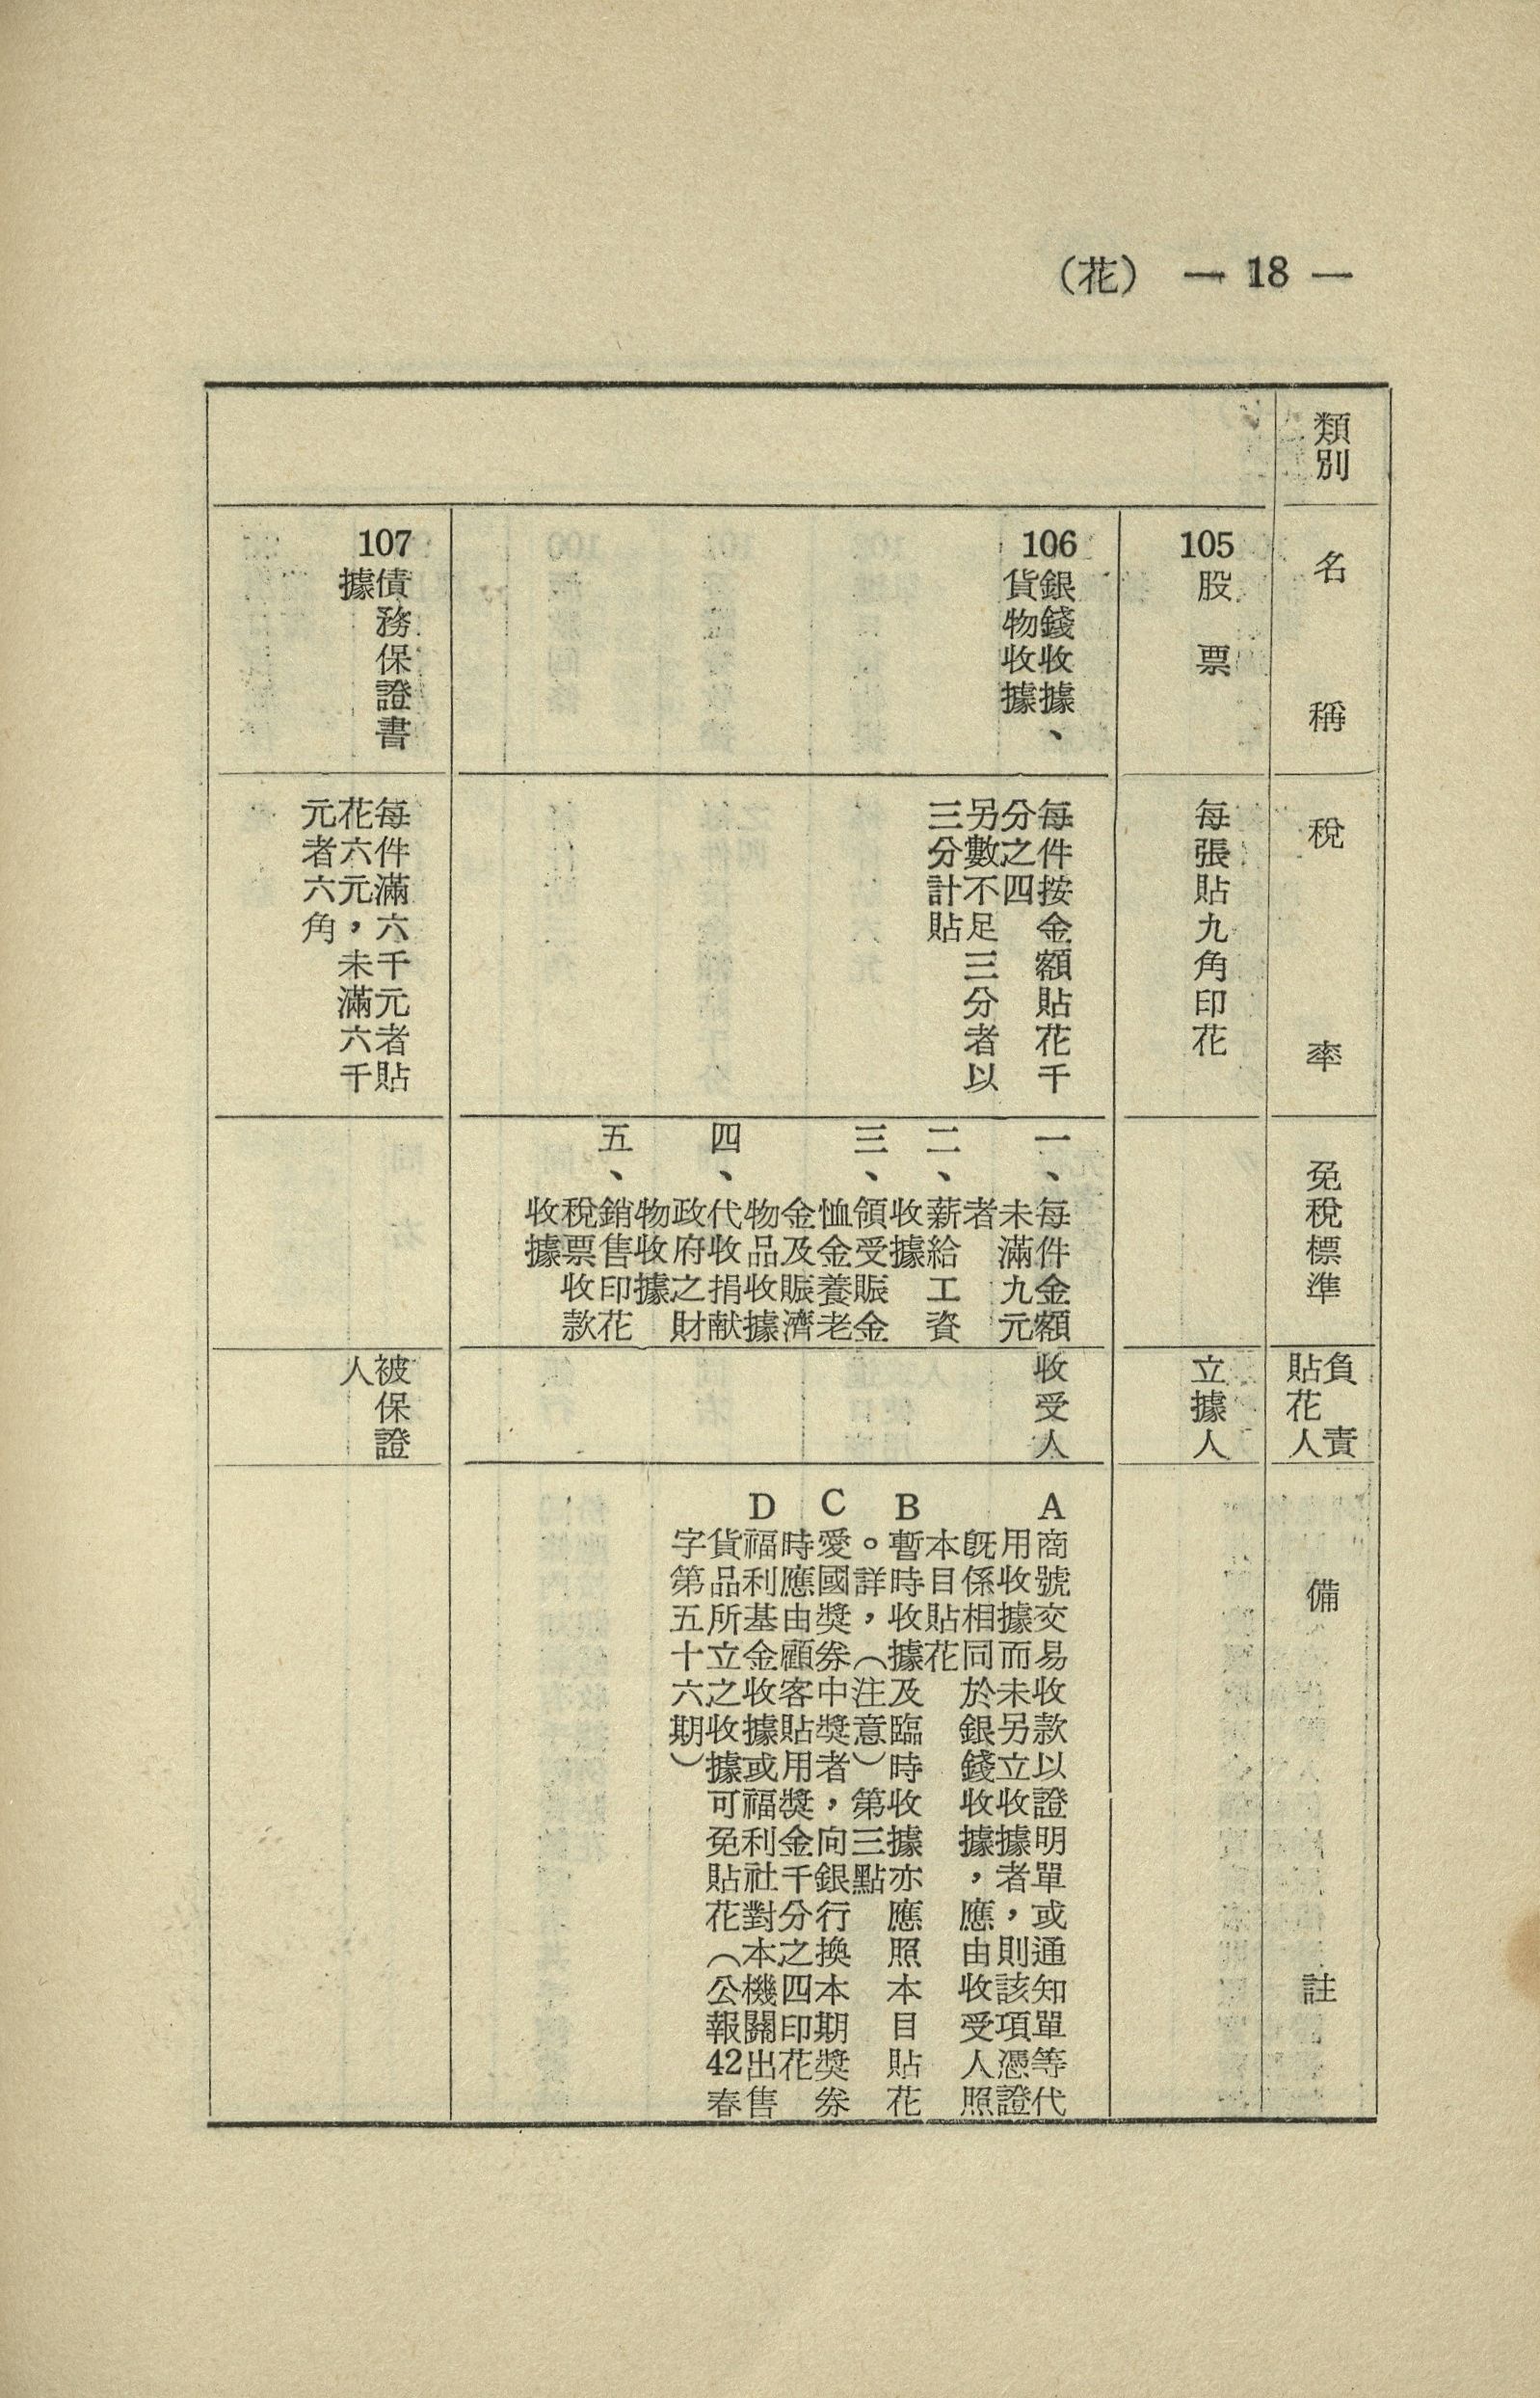 (花) — 18 —
類別
名稱
稅率
免稅標準
負責
貼花人
備註
105 股票
每張貼九角印花
立據人
106 銀錢收據、
貨物收據
每件按金額貼花千
分之四
另數不足三分者以
三分計貼
一、每件金額
未滿九元
者
二、薪給工資
收據
三、領受賑金
恤金養老
金及賑濟
物品收據
四、代收捐献
政府之財
物收據
五、銷售印花
稅票收款
收據
收受人
A 商號交易收款以證明單或通知單等代
用收據而未另立收據者，則該項憑證
旣係相同於銀錢收據，應由收受人照
本目貼花
B 暫時收據及臨時收據亦應照本目貼花
。詳，（注意）第三點
C 愛國獎券中獎者，向銀行換本期獎券
時應由顧客貼用獎金千分之四印花
D 福利基金收據或福利社對本機關出售
貨品所立之收據可免貼花（公報42春
字第五十六期）
107 債務保證書
據
每件滿六千元者貼
花六元，未滿六千
元者六角
被保證
人